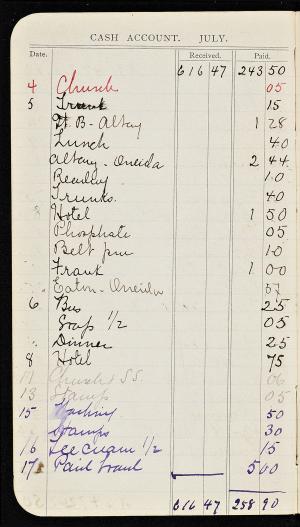 CASH ACCOUNT. JULY.
Date. Received. Paid.
616 47 243 50
4 Church 05
5 Trunk 15
B - Albany 1 28
Lunch 40
Albany - Oneida 2 44
Reading 10
Trunks 40
Hotel 1 50
Phosphate 05
Belt pin 10
Frank 1 00
Eaton - Oneida 07
6 Bus 25
Soap 1/2 05
Dinner 25
8 Hotel 75
11 Church & S.S. 06
13 Stamps 05
15 Washing 50
Stamps 30
16 Icecream 1/2 15
17 Paid Frank 5 00
616 47 258 90